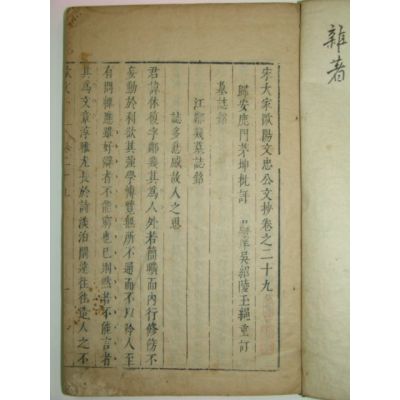 雜著
宋大家歐陽文忠公文抄卷之二十九
歸安鹿門茅坤批評 吳紹陵王繩重訂
墓誌銘
江鄰幾墓誌銘
誌多悲感故人之思
君諱休復字鄰幾其為人外若簡曠而內行修飭不
妄動於利欲其強學博覽無所不通而不以矜人至
有問輒應雖好辯者不能窮也已則默若不能言者
其為文章淳雅尤長於詩淡泊閒遠往往造人之不